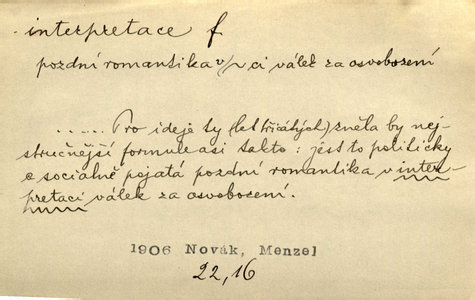 interpretace f
pozdní romantika v ~ci válek za osvobození
..... Pro ideje ty (let třicátých) zněla by nej-
stručnější formule asi takto: jest to politicky
a sociálně pojatá pozdní romantika v inter-
pretaci válek za osvobození.
1906 Novák, Menzel
22, 16